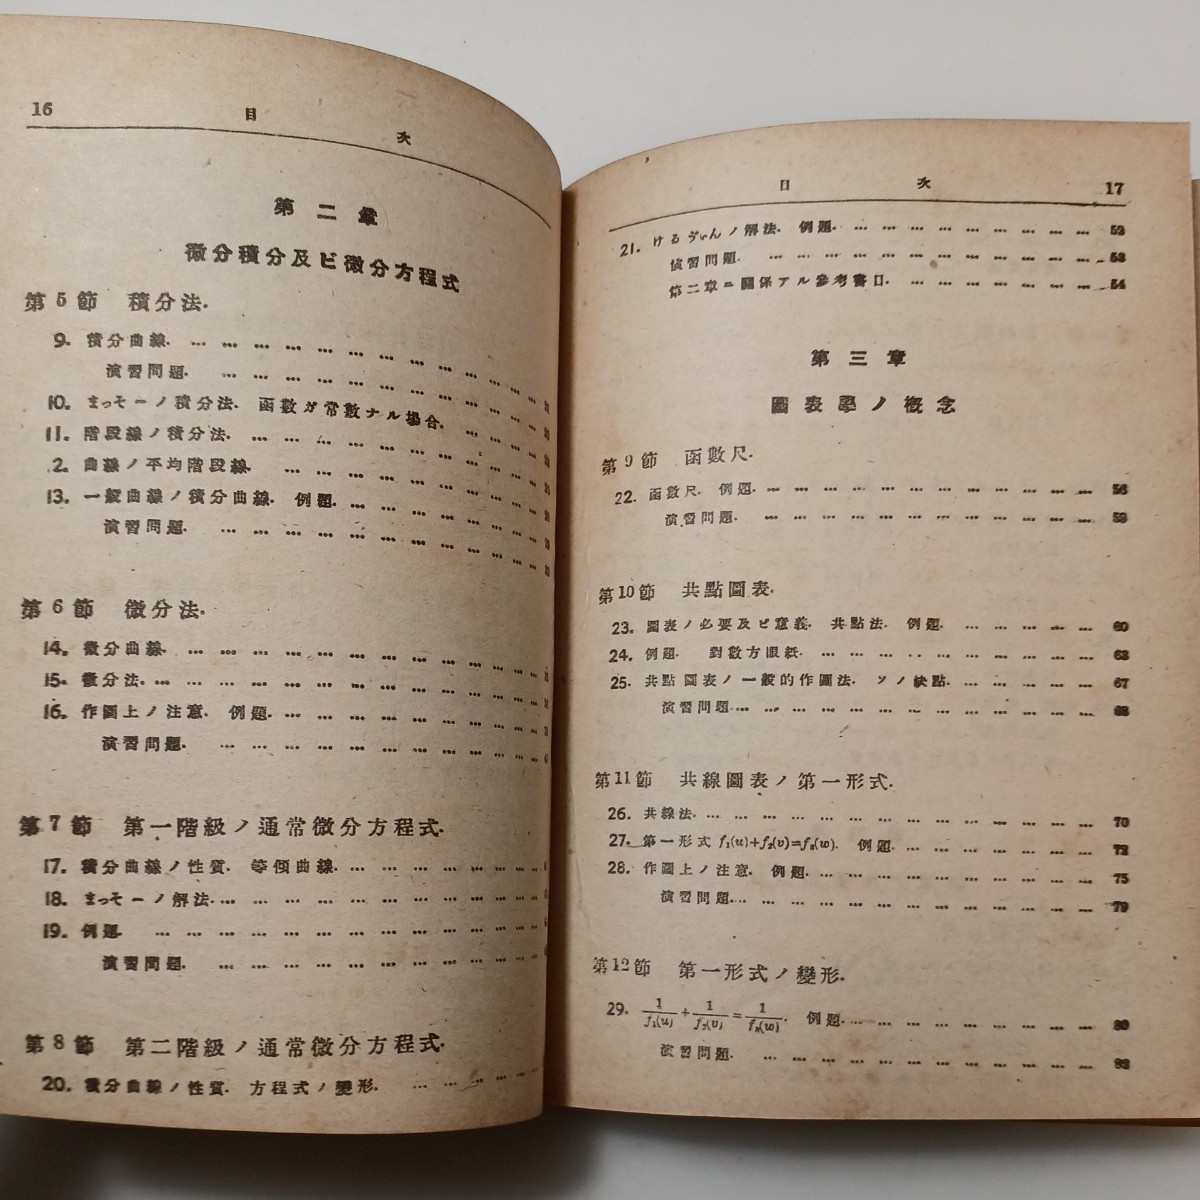 16 目 次
第二章
微分積分及ビ微分方程式
第5節 積分法.
9. 積分曲線. ... ... ... ... ... ... ... ... ... ... ... ...
演習問題. ... ... ... ... ... ... ... ... ... ... ...
10. まっそーノ積分法. 函數ガ常數ナル場合. ... ... ...
11. 階段線ノ積分法. ... ... ... ... ... ... ... ... ... ...
2. 曲線ノ平均階段線. ... ... ... ... ... ... ... ... ...
13. 一般曲線ノ積分曲線. 例題. ... ... ... ... ... ... ...
演習問題. ... ... ... ... ... ... ... ... ... ... ...
第6節 微分法.
14. 微分曲線. ... ... ... ... ... ... ... ... ... ... ... ...
15. 微分法. ... ... ... ... ... ... ... ... ... ... ... ... ...
16. 作圖上ノ注意. 例題. ... ... ... ... ... ... ... ... ...
演習問題. ... ... ... ... ... ... ... ... ... ... ...
第7節 第一階級ノ通常微分方程式.
17. 積分曲線ノ性質. 等傾曲線. ... ... ... ... ... ... ...
18. まっそーノ解法. ... ... ... ... ... ... ... ... ... ... ...
19. 例題. ... ... ... ... ... ... ... ... ... ... ... ... ...
演習問題. ... ... ... ... ... ... ... ... ... ... ...
第8節 第二階級ノ通常微分方程式.
20. 積分曲線ノ性質. 方程式ノ變形. ... ... ... ... ...
目 次 17
21. けるゔぃんノ解法. 例題. ... ... ... ... ... ... ... ... ... 52
演習問題. ... ... ... ... ... ... ... ... ... ... ... ... 53
第二章ニ關係アル參考書目. ... ... ... ... ... ... ... 54
第三章
圖表學ノ概念
第9節 函數尺.
22. 函數尺. 例題. ... ... ... ... ... ... ... ... ... ... ... ... 56
演習問題. ... ... ... ... ... ... ... ... ... ... ... ... 59
第10節 共點圖表.
23. 圖表ノ必要及ビ意義. 共點法. 例題. ... ... ... ... ... 60
24. 例題. 對數方眼紙. ... ... ... ... ... ... ... ... ... ... 63
25. 共點圖表ノ一般的作圖法. ソノ缺點. ... ... ... ... ... 67
演習問題. ... ... ... ... ... ... ... ... ... ... ... ... ... 68
第11節 共線圖表ノ第一形式.
26. 共線法. ... ... ... ... ... ... ... ... ... ... ... ... ... ... 70
27. 第一形式 f₁(u)+f₂(v)=f₃(w). 例題. ... ... ... ... ... ... ... 72
28. 作圖上ノ注意. 例題. ... ... ... ... ... ... ... ... ... ... 75
演習問題. ... ... ... ... ... ... ... ... ... ... ... ... ... 79
第12節 第一形式ノ變形.
29. 1/f₁(u) + 1/f₂(v) = 1/f₃(w). 例題. ... ... ... ... ... ... ... ... ... 80
演習問題. ... ... ... ... ... ... ... ... ... ... ... ...